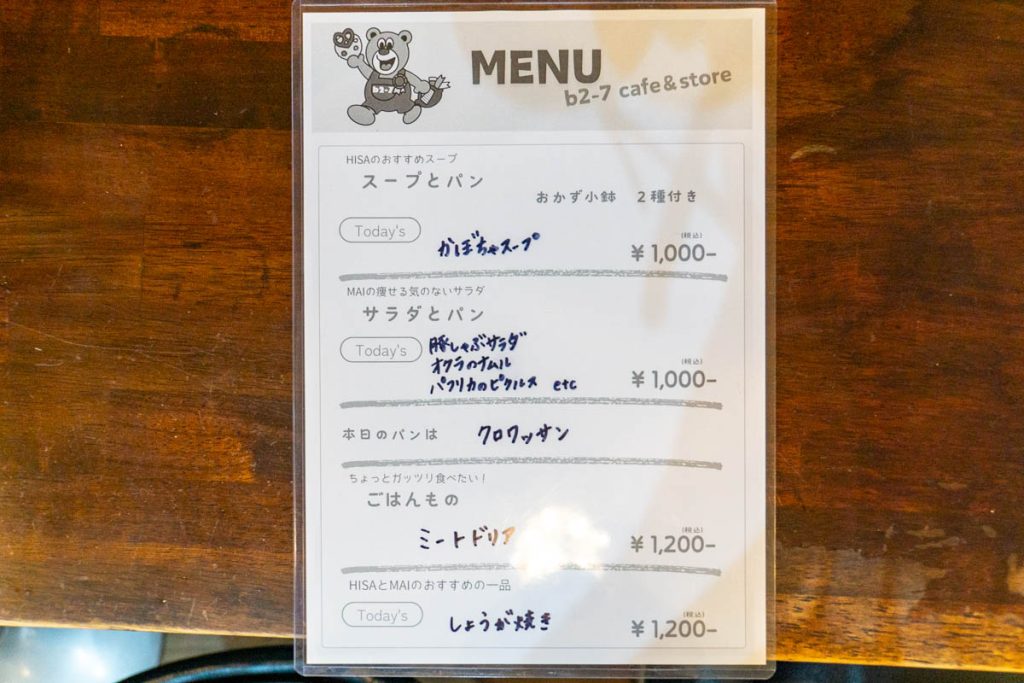 MENU
b2-7 cafe&store
HISAのおすすめスープ
スープとパン
おかず小鉢 2種付き
Today's
かぼちゃスープ
(税込)
¥1,000−
MAIの痩せる気のないサラダ
サラダとパン
Today's
豚しゃぶサラダ
オクラのナムル
パプリカのピクルス etc
(税込)
¥1,000−
本日のパンは クロワッサン
ちょっとガッツリ食べたい!
ごはんもの
ミートドリア
(税込)
¥1,200−
HISAとMAIのおすすめの一品
Today's
しょうが焼き
(税込)
¥1,200−